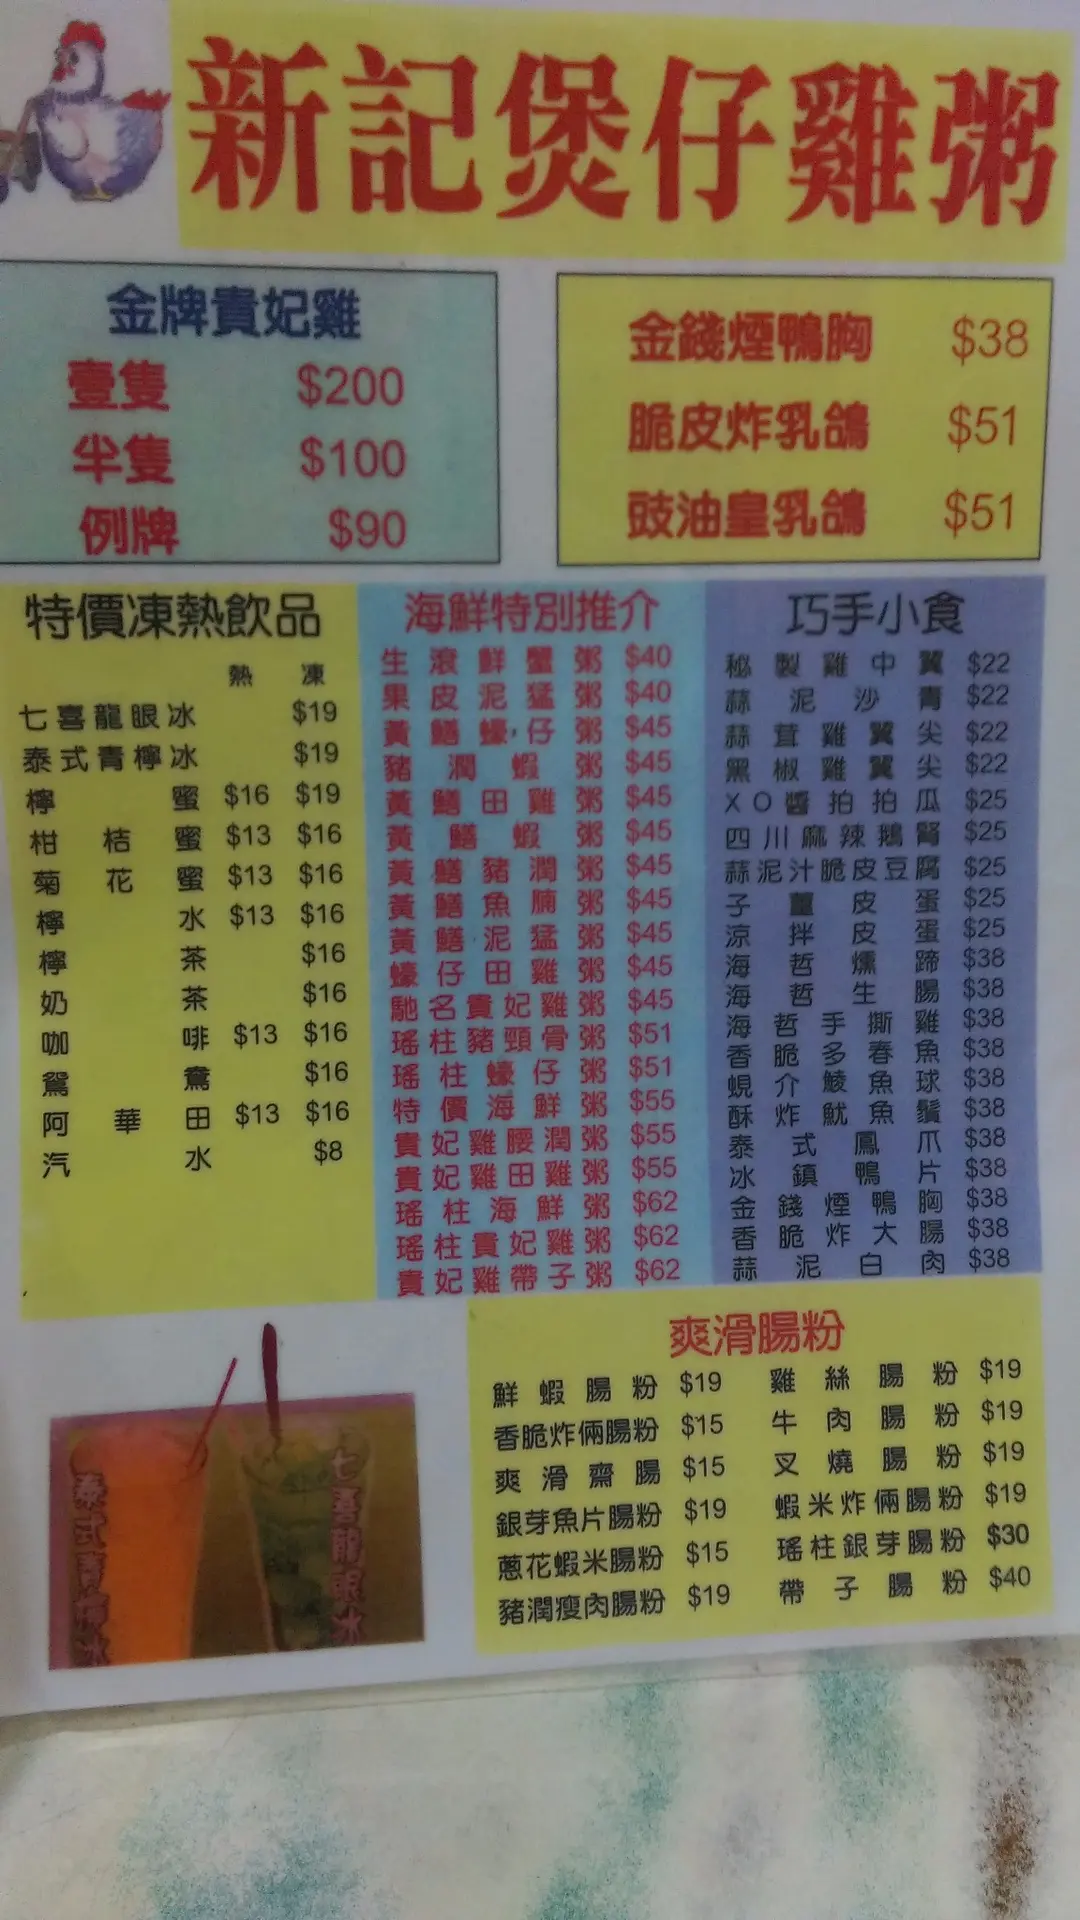 新記煲仔雞粥
金牌貴妃雞
壹隻 $200
半隻 $100
例牌 $90
金錢煙鴨胸 $38
脆皮炸乳鴿 $51
豉油皇乳鴿 $51
特價凍熱飲品
熱 凍
七喜龍眼冰 $19
泰式青檸冰 $19
檸蜜 $16 $19
柑桔蜜 $13 $16
菊花蜜 $13 $16
檸水 $13 $16
檸茶 $16
奶茶 $16
咖啡 $13 $16
鴛鴦 $16
阿華田 $13 $16
汽水 $8
海鮮特別推介
生滾鮮蟹粥 $40
果皮泥猛粥 $40
黃鱔蠔仔粥 $45
豬潤蝦粥 $45
黃鱔田雞粥 $45
黃鱔蝦粥 $45
黃鱔豬潤粥 $45
黃鱔魚腩粥 $45
黃鱔泥猛粥 $45
蠔仔田雞粥 $45
馳名貴妃雞粥 $45
瑤柱豬頸骨粥 $51
瑤柱蠔仔粥 $51
特價海鮮粥 $55
貴妃雞腰潤粥 $55
貴妃雞田雞粥 $55
瑤柱海鮮粥 $62
瑤柱貴妃雞粥 $62
貴妃雞帶子粥 $62
巧手小食
秘製雞中翼 $22
蒜泥沙青 $22
蒜茸雞翼尖 $22
黑椒雞翼尖 $22
XO醬拍拍瓜 $25
四川麻辣鵝腎 $25
蒜泥汁脆皮豆腐 $25
子薑皮蛋 $25
涼拌皮蛋 $25
海哲燻蹄 $38
海哲生腸 $38
海哲手撕雞 $38
香脆多春魚 $38
蜆介鯪魚球 $38
酥炸魷魚鬚 $38
泰式鳳爪 $38
冰鎮鴨片 $38
金錢煙鴨胸 $38
香脆炸大腸 $38
蒜泥白肉 $38
爽滑腸粉
鮮蝦腸粉 $19
香脆炸倆腸粉 $15
爽滑齋腸 $15
銀芽魚片腸粉 $19
蔥花蝦米腸粉 $15
豬潤瘦肉腸粉 $19
雞絲腸粉 $19
牛肉腸粉 $19
叉燒腸粉 $19
蝦米炸倆腸粉 $19
瑤柱銀芽腸粉 $30
帶子腸粉 $40
泰式青檸冰
七喜龍眼冰